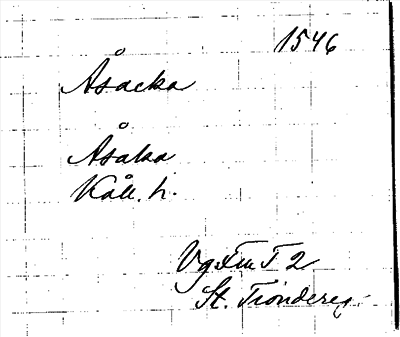 1546
Åsacka
Åsaka
Kåll. h.
VgFmT 2
St. Tiondereg.